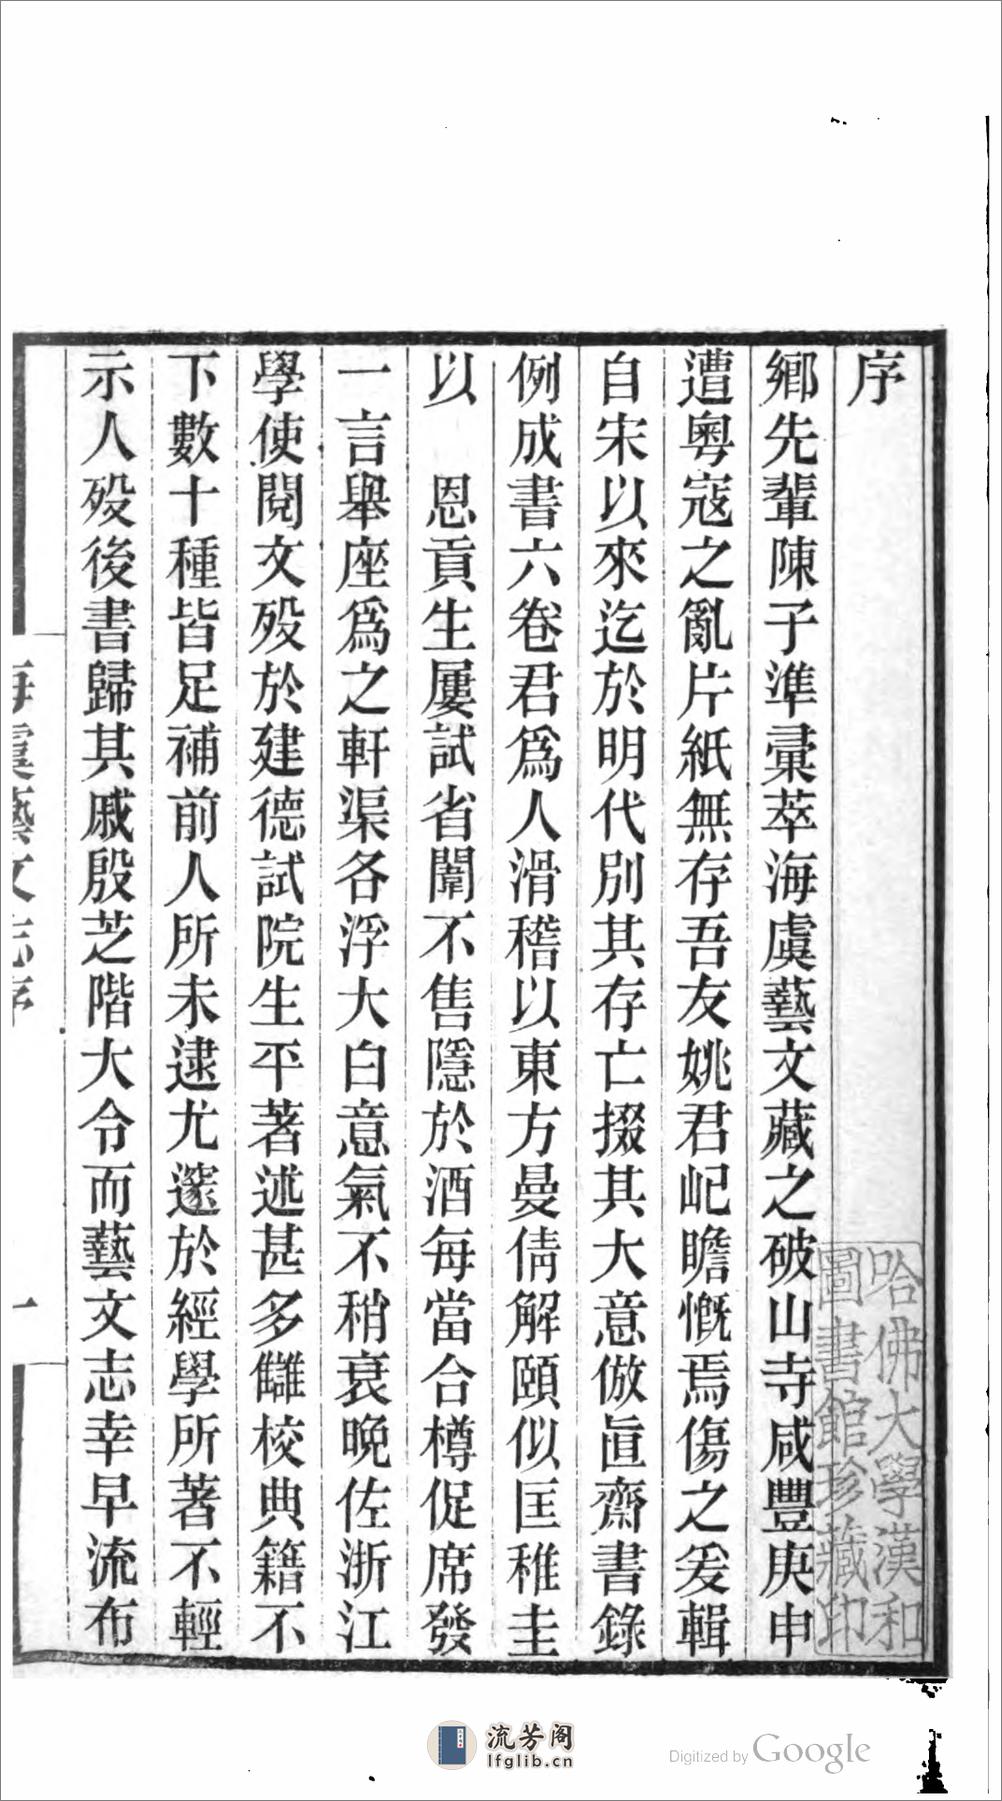 序
鄉先輩陳子準彙萃海虞藝文藏之破山寺咸豐庚申
遭粵寇之亂片紙無存吾友姚君屺瞻慨焉傷之爰輯
自宋以來迄於明代別其存亡掇其大意倣直齋書錄
例成書六卷君爲人滑稽以東方曼倩解頤似匡稚圭
以　恩貢生屢試省闈不售隱於酒每當合樽促席發
一言舉座爲之軒渠各浮大白意氣不稍衰晚佐浙江
學使閱文歿於建德試院生平著述甚多讎校典籍不
下數十種皆足補前人所未逮尤邃於經學所著不輕
示人歿後書歸其戚殷芝階大令而藝文志幸早流布
海虞藝文志序
一
哈佛大學漢和
圖書館珍藏印
流芳阁
lfglib.cn
Digitized by Google